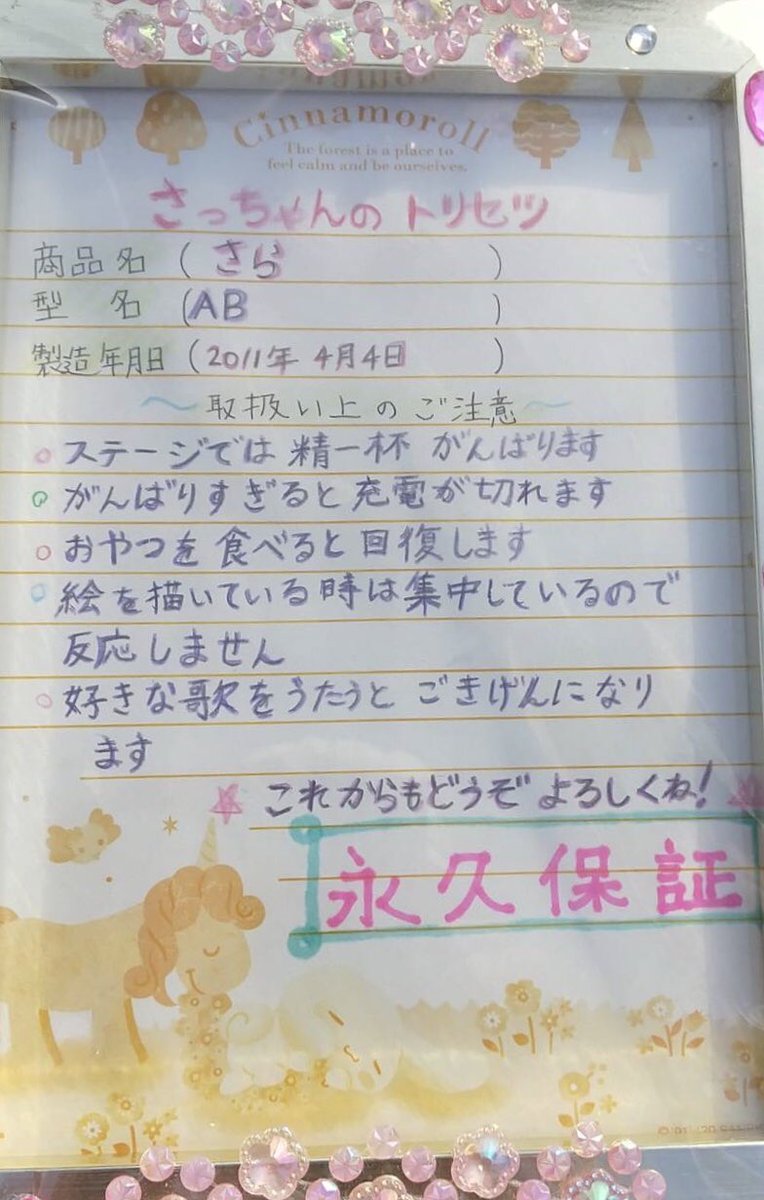 Cinnamoroll
The forest is a place to
feel calm and be ourselves.
さっちゃんのトリセツ
商品名（さら）
型 名（AB）
製造年月日（2011年4月4日）
〜取扱い上のご注意〜
○ステージでは精一杯がんばります
○がんばりすぎると充電が切れます
○おやつを食べると回復します
○絵を描いている時は集中しているので
反応しません
○好きな歌をうたうとごきげんになり
ます
☆これからもどうぞよろしくね！☆
永久保証